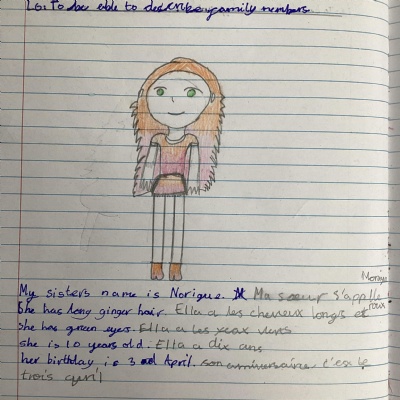 LO: To be able to describe my family members.
My sisters name is Norigue. Ma soeur s'aplle Norigue
She has long ginger hair. Ella a les cheveux longs et roux
She has green eyes. Ella a les yeax verts
she is 10 years old. Ella a dix ans
her birthday is 3rd April. son anniversaire, c'est le
trois avril